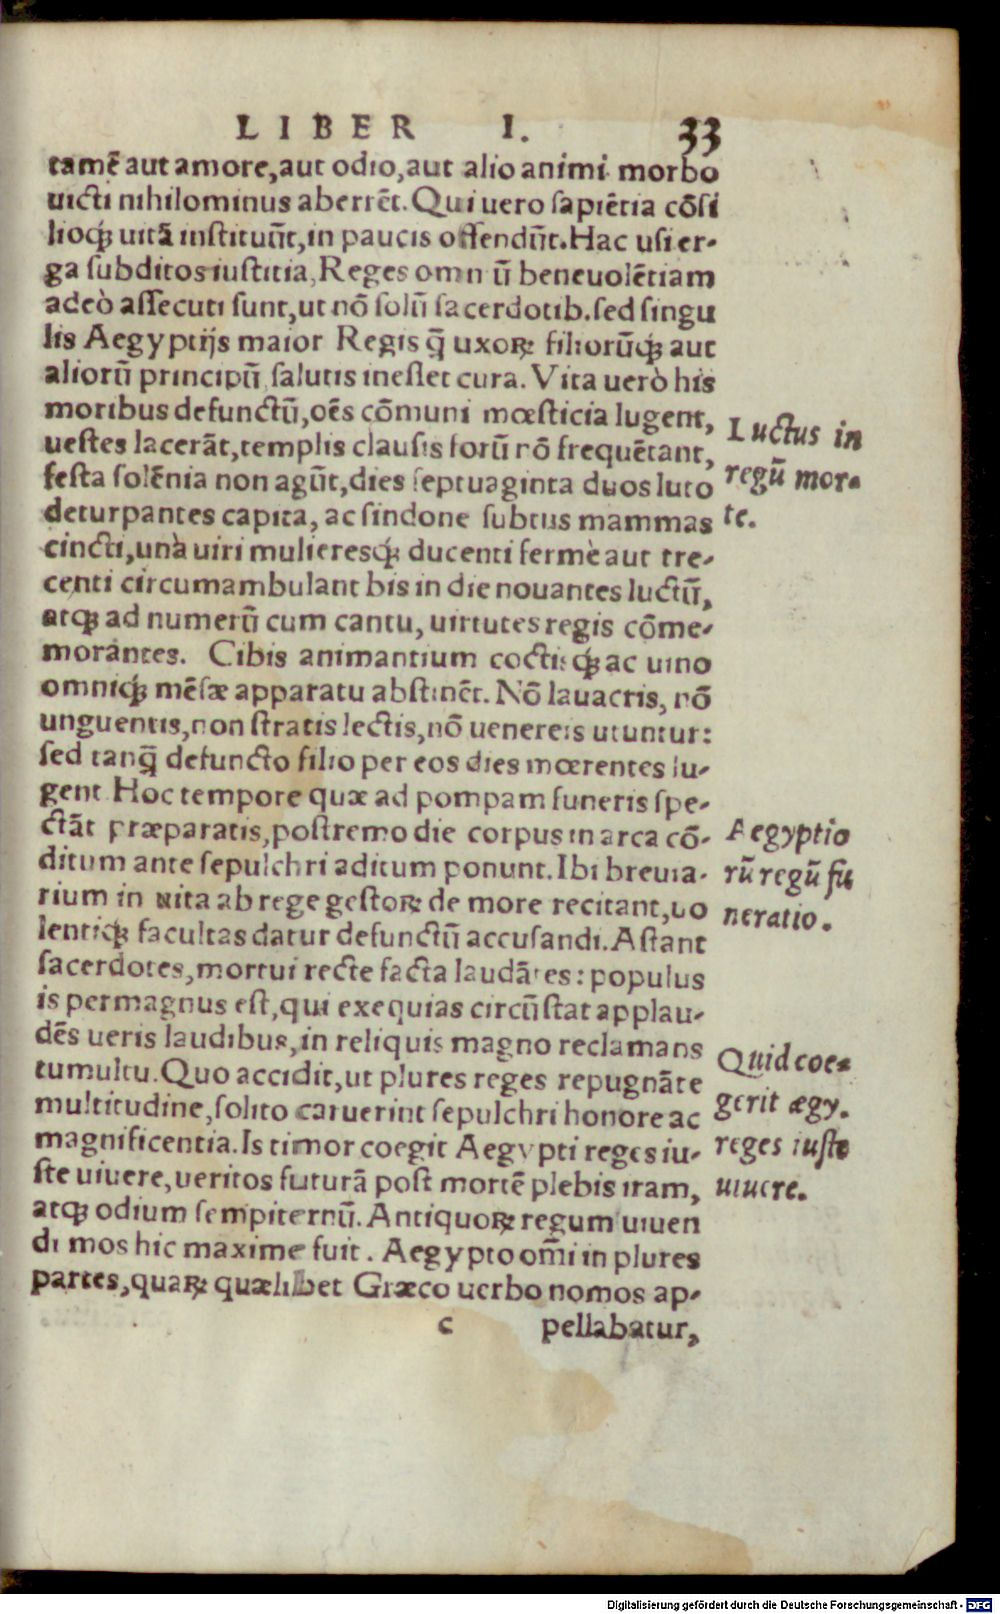 LIBER I. 33
tamē aut amore, aut odio, aut alio animi morbo
uicti nihilominus aberrēt. Qui uero sapiētia cōsi
lioq́ꝫ uitā instituūt, in paucis offendūt. Hac usi er-
ga subditos iustitia, Reges omniū beneuolētiam
adeò assecuti sunt, ut nō solū sacerdotib. sed singu
lis Aegyptijs maior Regis q̄ uxorꝝ filiorūq́ꝫ aut
aliorū principū salutis inesset cura. Vita uerò his
moribus defunctū, oēs cōmuni mœsticia lugent,
uestes lacerāt, templis clausis forū nō frequētant,
festa solēnia non agūt, dies septuaginta duos luto
deturpantes capita, ac sindone subtus mammas
cincti, unà uiri mulieresq́ꝫ ducenti fermè aut tre-
centi circumambulant bis in die nouantes luctū,
atq́ꝫ ad numerū cum cantu, uirtutes regis cōme-
morantes. Cibis animantium coctisq́ꝫ ac uino
omniq́ꝫ mēsæ apparatu abstinēt. Nō lauacris, nō
unguentis, non stratis lectis, nō uenereis utuntur:
sed tanq̄ defuncto filio per eos dies mœrentes lu-
gent. Hoc tempore quæ ad pompam funeris spe-
ctāt præparatis, postremo die corpus in arca cō-
ditum ante sepulchri aditum ponunt. Ibi breuia-
rium in uita ab rege gestorꝝ de more recitant, uo
lentiq́ꝫ facultas datur defunctū accusandi. Astant
sacerdotes, mortui recte facta laudātes: populus
is permagnus est, qui exequias circūstat applau-
dēs ueris laudibus, in reliquis magno reclamans
tumultu. Quo accidit, ut plures reges repugnāte
multitudine, solito caruerint sepulchri honore ac
magnificentia. Is timor coegit Aegypti reges iu-
ste uiuere, ueritos futurā post mortē plebis iram,
atq́ꝫ odium sempiternū. Antiquorꝝ regum uiuen
di mos hic maxime fuit. Aegypto om̄i in plures
partes, quarꝝ quælibet Græco uerbo nomos ap-
c pellabatur,
Luctus in
regū mor-
te.
Aegyptio
rū regū fu
neratio.
Quid coe-
gerit ægy.
reges iuste
uiuere.
Digitalisierung gefördert durch die Deutsche Forschungsgemeinschaft - DFG